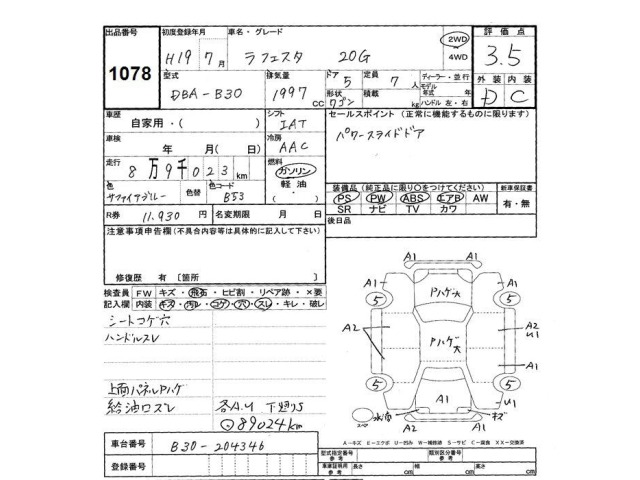 出品番号
1078
初度登録年月
H19 年 7 月
車名・グレード
ラフェスタ 20G
2WD
4WD
評価点
3.5
型式
DBA-B30
排気量
1997 CC
ドア
5
形状
ワゴン
定員
7 人
積載
kg
ディーラー・並行
モデル年式 年
ハンドル 左・右
外装 内装
D C
車歴
自家用・( )
シフト
IAT
セールスポイント (正常に機能するものに限ります)
パワースライドドア
車検
年 月( 日)
冷房
AAC
走行
8万9千023km
燃料
ガソリン
軽油
・( )
色
サファイアブルー
色替
色コード
B53
装備品(純正品に限り○をつけてください)
PS PW ABS エアB AW
SR ナビ TV カワ
新車保証書
有・無
R券 11,930 円
名変期限 月 日
後日品
注意事項申告欄(不具合内容等は具体的に記入して下さい)
修復歴 有 [箇所 ]
検査員記入欄
FW キズ・飛石・ヒビ割・リペア跡・×要
内装 キズ・汚レ・コゲ・穴・スレ・キレ・破レ
シートコゲ穴
ハンドルスレ
上面パネルPハゲ
給油口スレ
各A.U 下廻りS
89024km
車台番号 B30-204346
登録番号
A1 A1
A1 Pハゲ大 A1
5 5
A2 Pハゲ大 A2 U1
A1
5 5
A1 U1
スペア 水滴 キズ
A2 A2
A-キズ E-エクボ U-凹み W-補修跡 S-サビ C-腐食 XX-交換済
型式指定番号 参考
類別区分番号 参考
車車証明用 参考 長さ cm 幅 cm 高さ cm